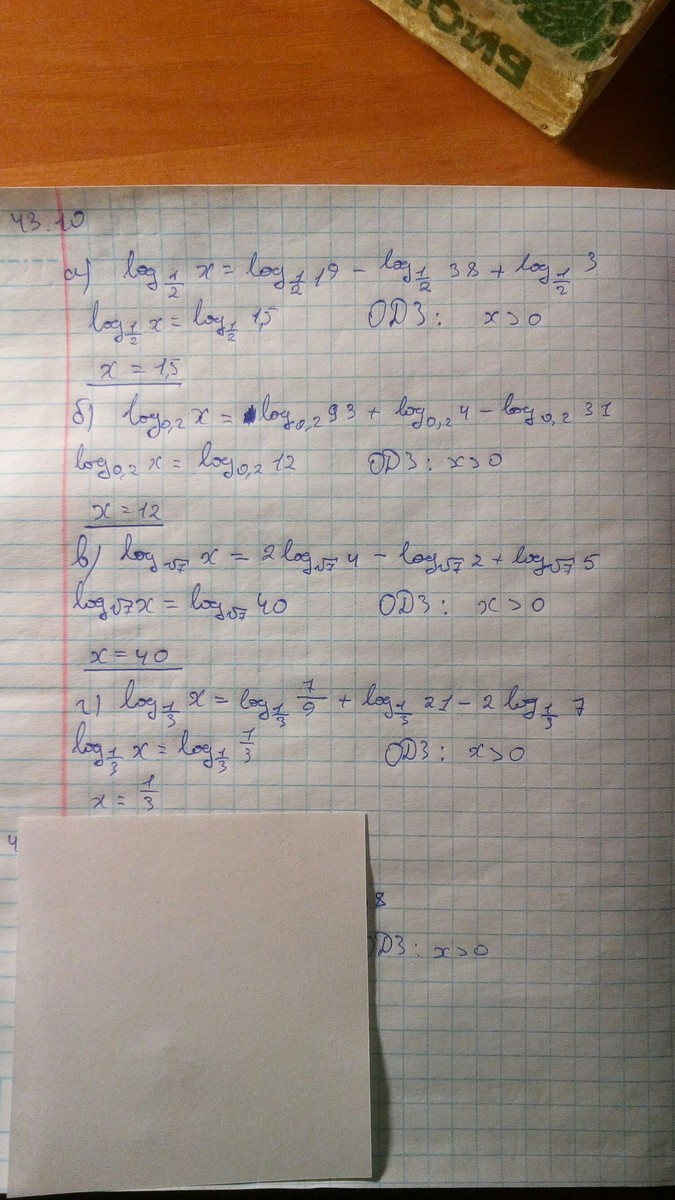 БИОЛ
43.10
а) log_{1/2} x = log_{1/2} 19 - log_{1/2} 38 + log_{1/2} 3
log_{1/2} x = log_{1/2} 1,5 ОДЗ: x>0
x = 1,5
б) log_{0,2} x = log_{0,2} 93 + log_{0,2} 4 - log_{0,2} 31
log_{0,2} x = log_{0,2} 12 ОДЗ: x>0
x = 12
в) log_{√7} x = 2 log_{√7} 4 - log_{√7} 2 + log_{√7} 5
log_{√7} x = log_{√7} 40 ОДЗ: x>0
x = 40
г) log_{1/3} x = log_{1/3} 7/9 + log_{1/3} 21 - 2 log_{1/3} 7
log_{1/3} x = log_{1/3} 1/3 ОДЗ: x>0
x = 1/3
4
8
ОДЗ: x>0